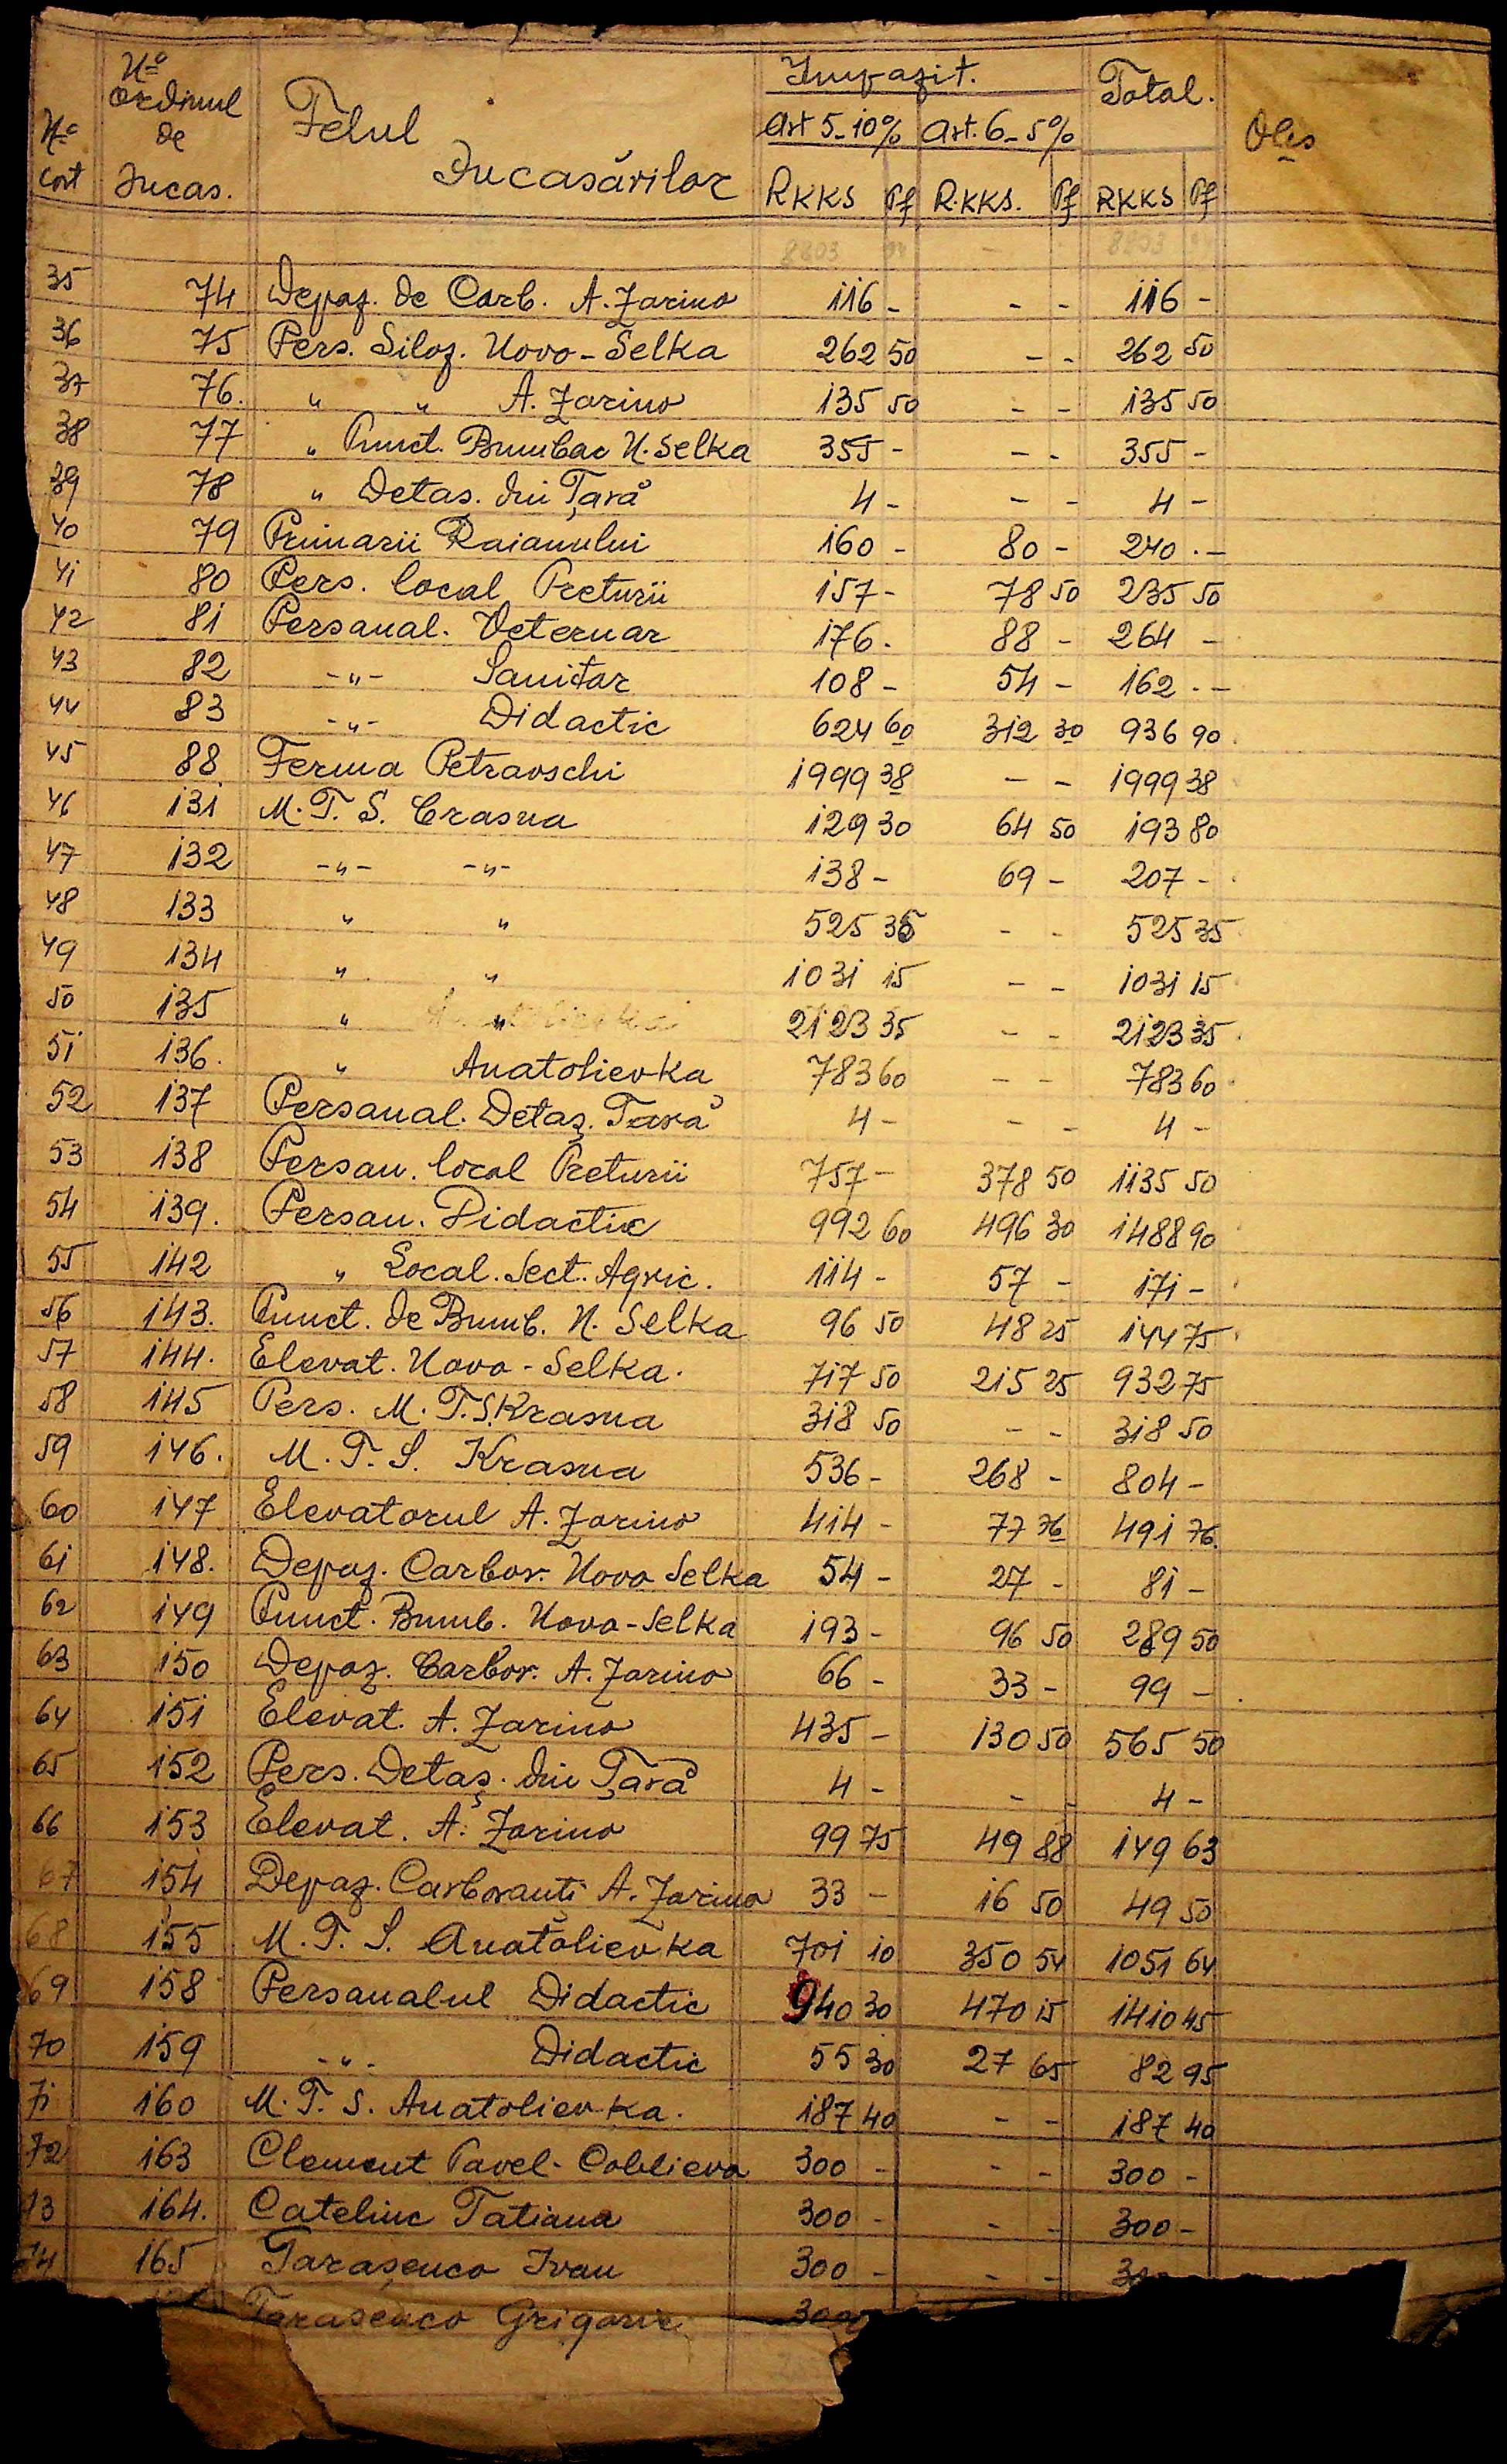 No cort | No Ordinul de Incas. | Felul Incasărilor | Impozit. Art 5-10% RKKS Pf | Art. 6-5% R.KKS. Pf | Total. RKKS Pf | Obs
8803 94 - 8803 94
35 74 Depoz. de Carb. A. Zarino 116 - - - 116 -
36 75 Pers. Siloz. Novo-Selka 262 50 - - 262 50
37 76. " " A. Zarino 135 50 - - 135 50
38 77 " Punct. Bumbac N. Selka 355 - - - 355 -
39 78 " Detaș. din Țară 4 - - - 4 -
40 79 Primarii Raionului 160 - 80 - 240 . -
41 80 Pers. local Preturii 157 - 78 50 235 50
42 81 Personal. Veternar 176 . 88 - 264 -
43 82 -"- Sanitar 108 - 54 - 162 . -
44 83 -"- Didactic 624 60 312 30 936 90
45 88 Ferma Petrovschi 1999 38 - - 1999 38
46 131 M. T. S. Crasna 129 30 64 50 193 80
47 132 -"- -"- 138 - 69 - 207 -
48 133 " " 525 35 - - 525 35
49 134 " " 1031 15 - - 1031 15
50 135 " " 2123 35 - - 2123 35
51 136. " Anatolievka 783 60 - - 783 60
52 137 Personal. Detaș. Țară 4 - - - 4 -
53 138 Person. local Preturii 757 - 378 50 1135 50
54 139. Person. Didactic 992 60 496 30 1488 90
55 142 " Local. Sect. Agric. 114 - 57 - 171 -
56 143. Punct. de Bumb. N. Selka 96 50 48 25 144 75
57 144. Elevat. Novo-Selka. 717 50 215 25 932 75
58 145 Pers. M. T. S. Krasna 318 50 - - 318 50
59 146. M. T. S. Krasna 536 - 268 - 804 -
60 147 Elevatorul A. Zarino 414 - 77 76 491 76
61 148. Depoz. Carbor. Novo Selka 54 - 27 - 81 -
62 149 Punct. Bumb. Novo-Selka 193 - 96 50 289 50
63 150 Depoz. Carbor. A. Zarino 66 - 33 - 99 -
64 151 Elevat. A. Zarino 435 - 130 50 565 50
65 152 Pers. Detaș. din Țară 4 - - - 4 -
66 153 Elevat. A. Zarino 99 75 49 88 149 63
67 154 Depoz. Carboranți A. Zarino 33 - 16 50 49 50
68 155 M. T. S. Anatolievka 701 10 350 54 1051 64
69 158 Personalul Didactic 940 30 470 15 1410 45
70 159 -"- Didactic 55 30 27 65 82 95
71 160 M. T. S. Anatolievka. 187 40 - - 187 40
72 163 Clement Pavel-Coblieva 300 - - - 300 -
73 164. Cateliuc Tatiana 300 - - - 300 -
74 165 Tarașenco Ivan 300 - - -
Tarașenco Grigorie 300